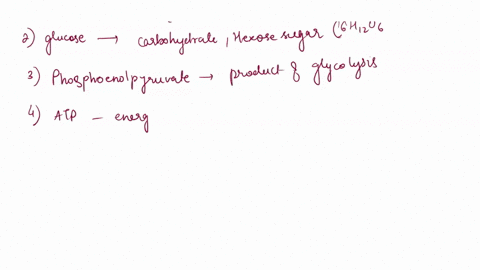 2) glucose → carbohydrate, Hexose sugar (C6H12O6
3) Phosphoenolpyruvate → product of glycolysis
4) ATP – energ